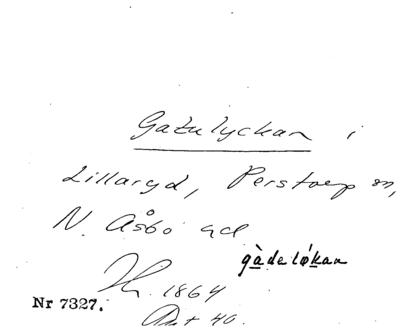 Gatulyckan i
Lillaryd, Perstorp sn,
N. Åsbo hd
gàdelǿkan
1864
Nr 7327.
40.